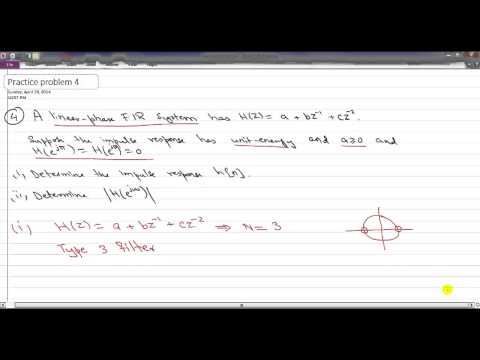 Practice problem 4
Sunday, April 20, 2014
④ A linear-phase FIR system has H(z) = a + bz⁻¹ + cz⁻².
Suppose the impulse response has unit-energy and a≥0 and
H(e^{jπ}) = H(e^{j0}) = 0
(i) Determine the impulse response h[n].
(ii) Determine |H(e^{jω})|
(i) H(z) = a + bz⁻¹ + cz⁻² ⇒ N = 3
Type 3 filter